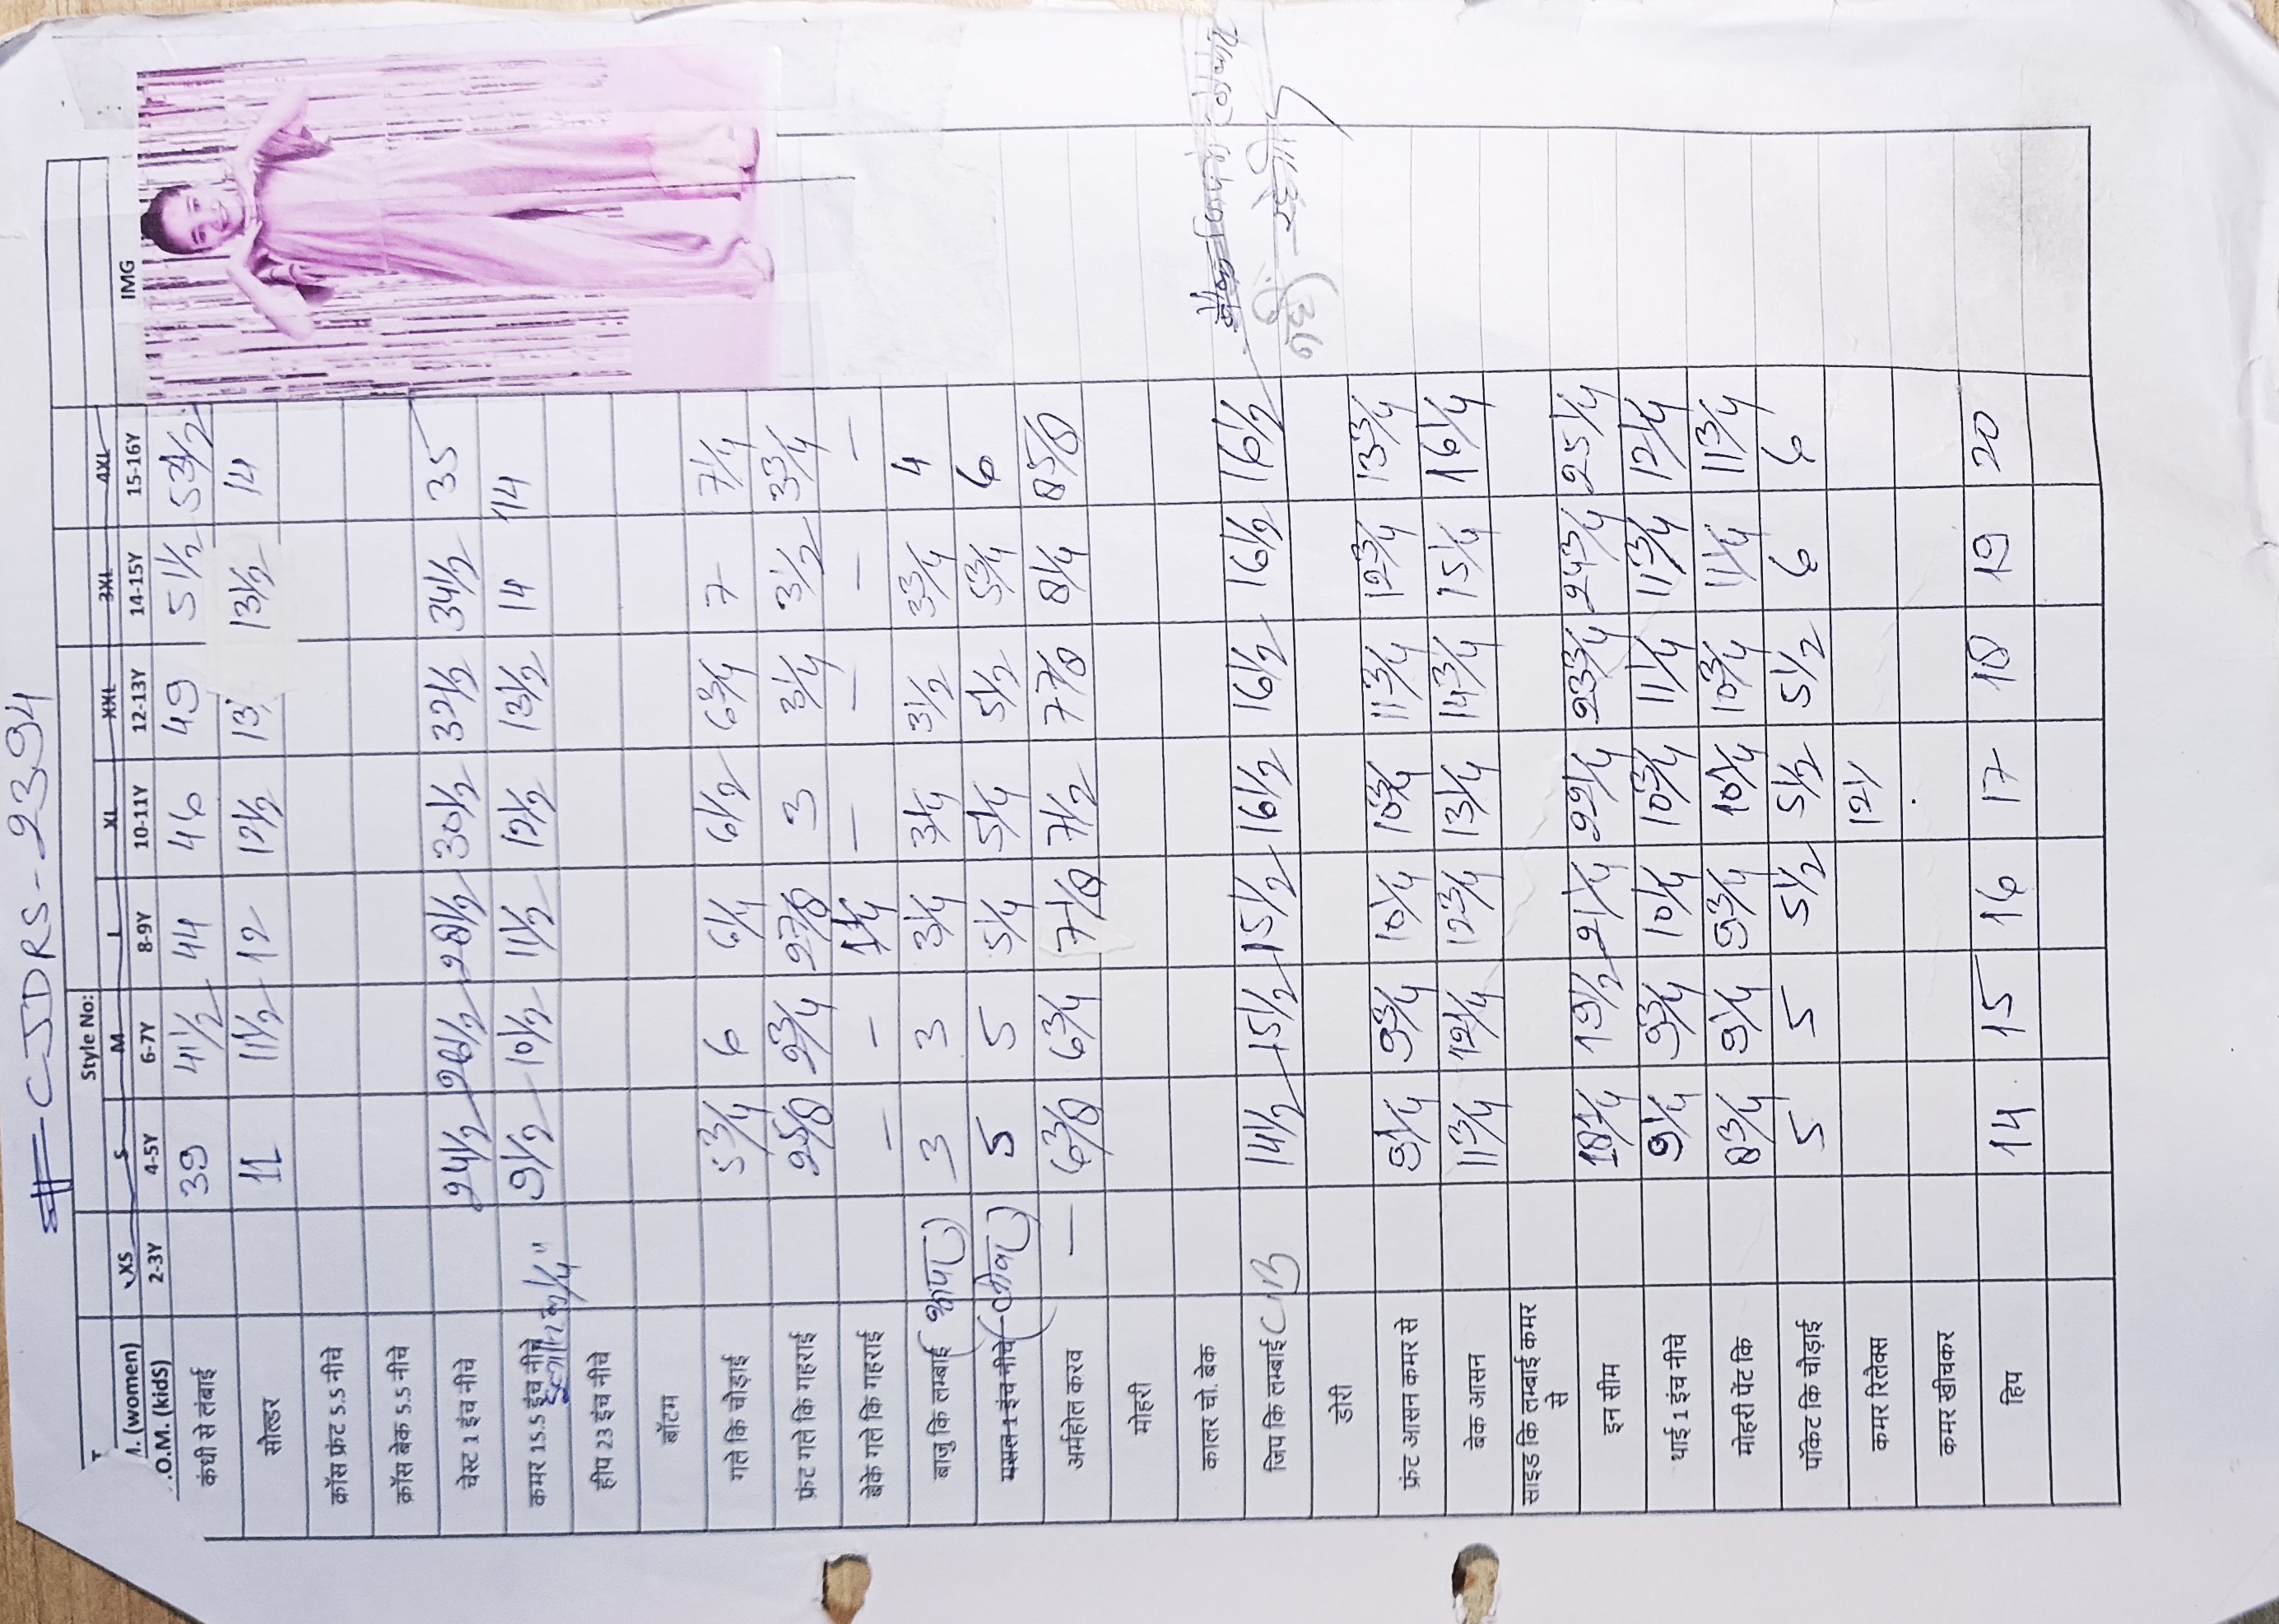 CJDRS-2394
Style No:
XS S M L XL XXL 3XL 4XL IMG
(women)
.O.M. (kidS) 2-3Y 4-5Y 6-7Y 8-9Y 10-11Y 12-13Y 14-15Y 15-16Y
कंधी से लंबाई 39 41 1/2 44 46 49 51 1/2
सोल्डर 11 11 1/2 12 12 1/2 13 13 1/2 14
क्रॉस फ्रंट 5.5 नीचे
क्रॉस बेक 5.5 नीचे
चेस्ट 1 इंच नीचे 24 1/2 26 1/2 28 1/2 30 1/2 32 1/2 34 1/2 35
कमर 15.5 इंच नीचे 9 1/2 10 1/2 11 1/2 12 1/2 13 1/2 14 14
हीप 23 इंच नीचे
बॉटम
गले कि चोड़ाई 5 3/4 6 6 1/4 6 1/2 6 3/4 7 7 1/4
फ्रंट गले कि गहराई 2 5/8 2 3/4 2 7/8 3 3 1/4 3 1/2 3 3/4
बेके गले कि गहराई - - - - - -
बाजु कि लम्बाई 3 3 3 1/4 3 1/4 3 1/2 3 3/4 4
मसल 1 इंच नीचे 5 5 5 1/4 5 1/4 5 1/2 5 3/4 6
अर्महोल करव — 6 3/8 6 3/4 7 1/8 7 1/2 7 7/8 8 1/4 8 5/8
मोहरी
कालर चो. बेक
जिप कि लम्बाई CB 14 1/2 15 1/2 15 1/2 16 1/2 16 1/2 16 1/2 16 1/2
डोरी
फ्रंट आसन कमर से 9 1/4 9 3/4 10 1/4 10 3/4 11 3/4 12 3/4 13 3/4
बेक आसन 11 3/4 12 1/4 12 3/4 13 1/4 14 3/4 15 1/4 16 1/4
साइड कि लम्बाई कमर
से
इन सीम 19 1/2 21 1/4 22 1/4 23 3/4 24 3/4 25 1/4
थाई 1 इंच नीचे 9 1/4 9 3/4 10 1/4 10 3/4 11 1/4 11 3/4 12 1/4
मोहरी पेंट कि 8 3/4 9 1/4 9 3/4 10 1/4 10 3/4 11 1/4 11 3/4
पॉकेट कि चौड़ाई 5 5 5 1/2 5 1/2 5 1/2 6 6
कमर रिलैक्स
कमर खीचकर
हिप 14 15 16 17 18 19 20